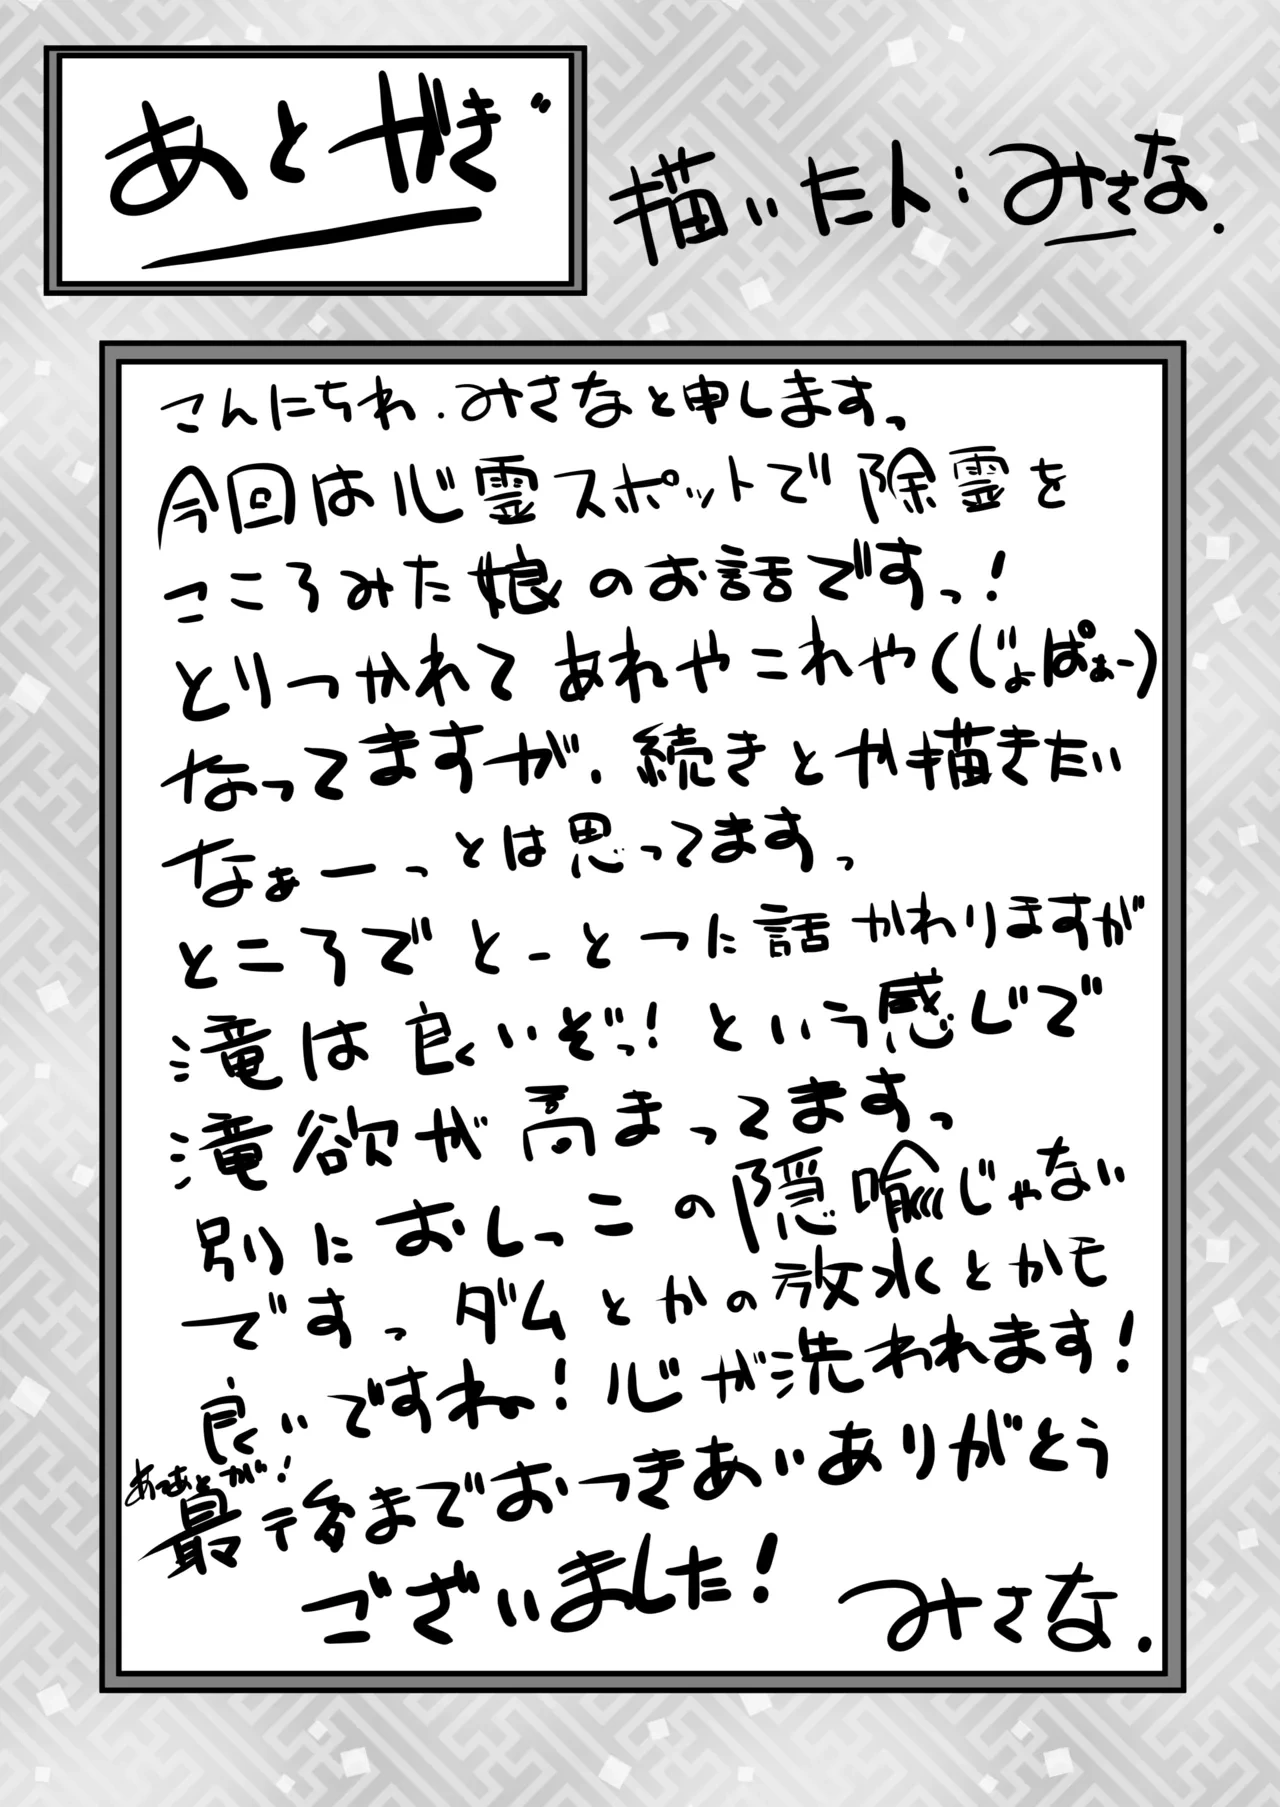 あとがき゛
描いた人:みさな.
こんにちわ.みさなと申します。
今回は心霊スポットで除霊を
こころみた娘のお話ですっ!
とりつかれてあれやこれや(じょぱぁー)
なってますが、続きとや描きたい
なぁーっとは思ってます。
ところでとーとつに話かわりますが
滝は良いぞっ!という感じで
滝欲が高まってます。
別におしっこの隠喩じゃない
です。ダムとかの放水とかも
良いですね!心が洗われます!
最後までおつきあいありがとう
ございました! みさな.